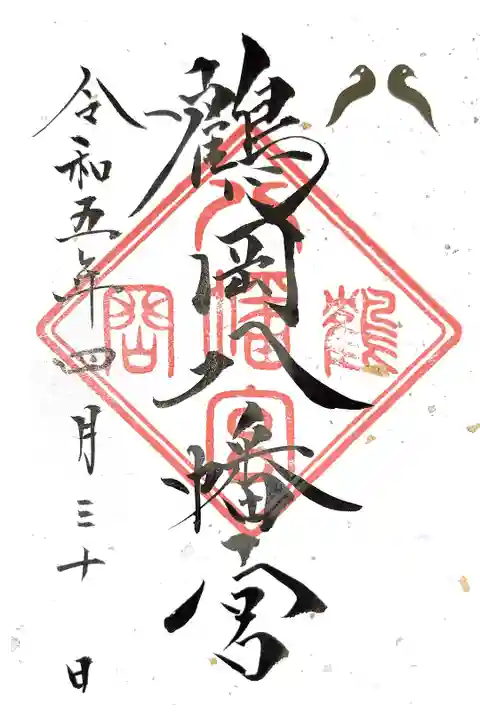 鶴岡八幡宮
令和五年四月三十日
鶴
岡
八
幡
宮